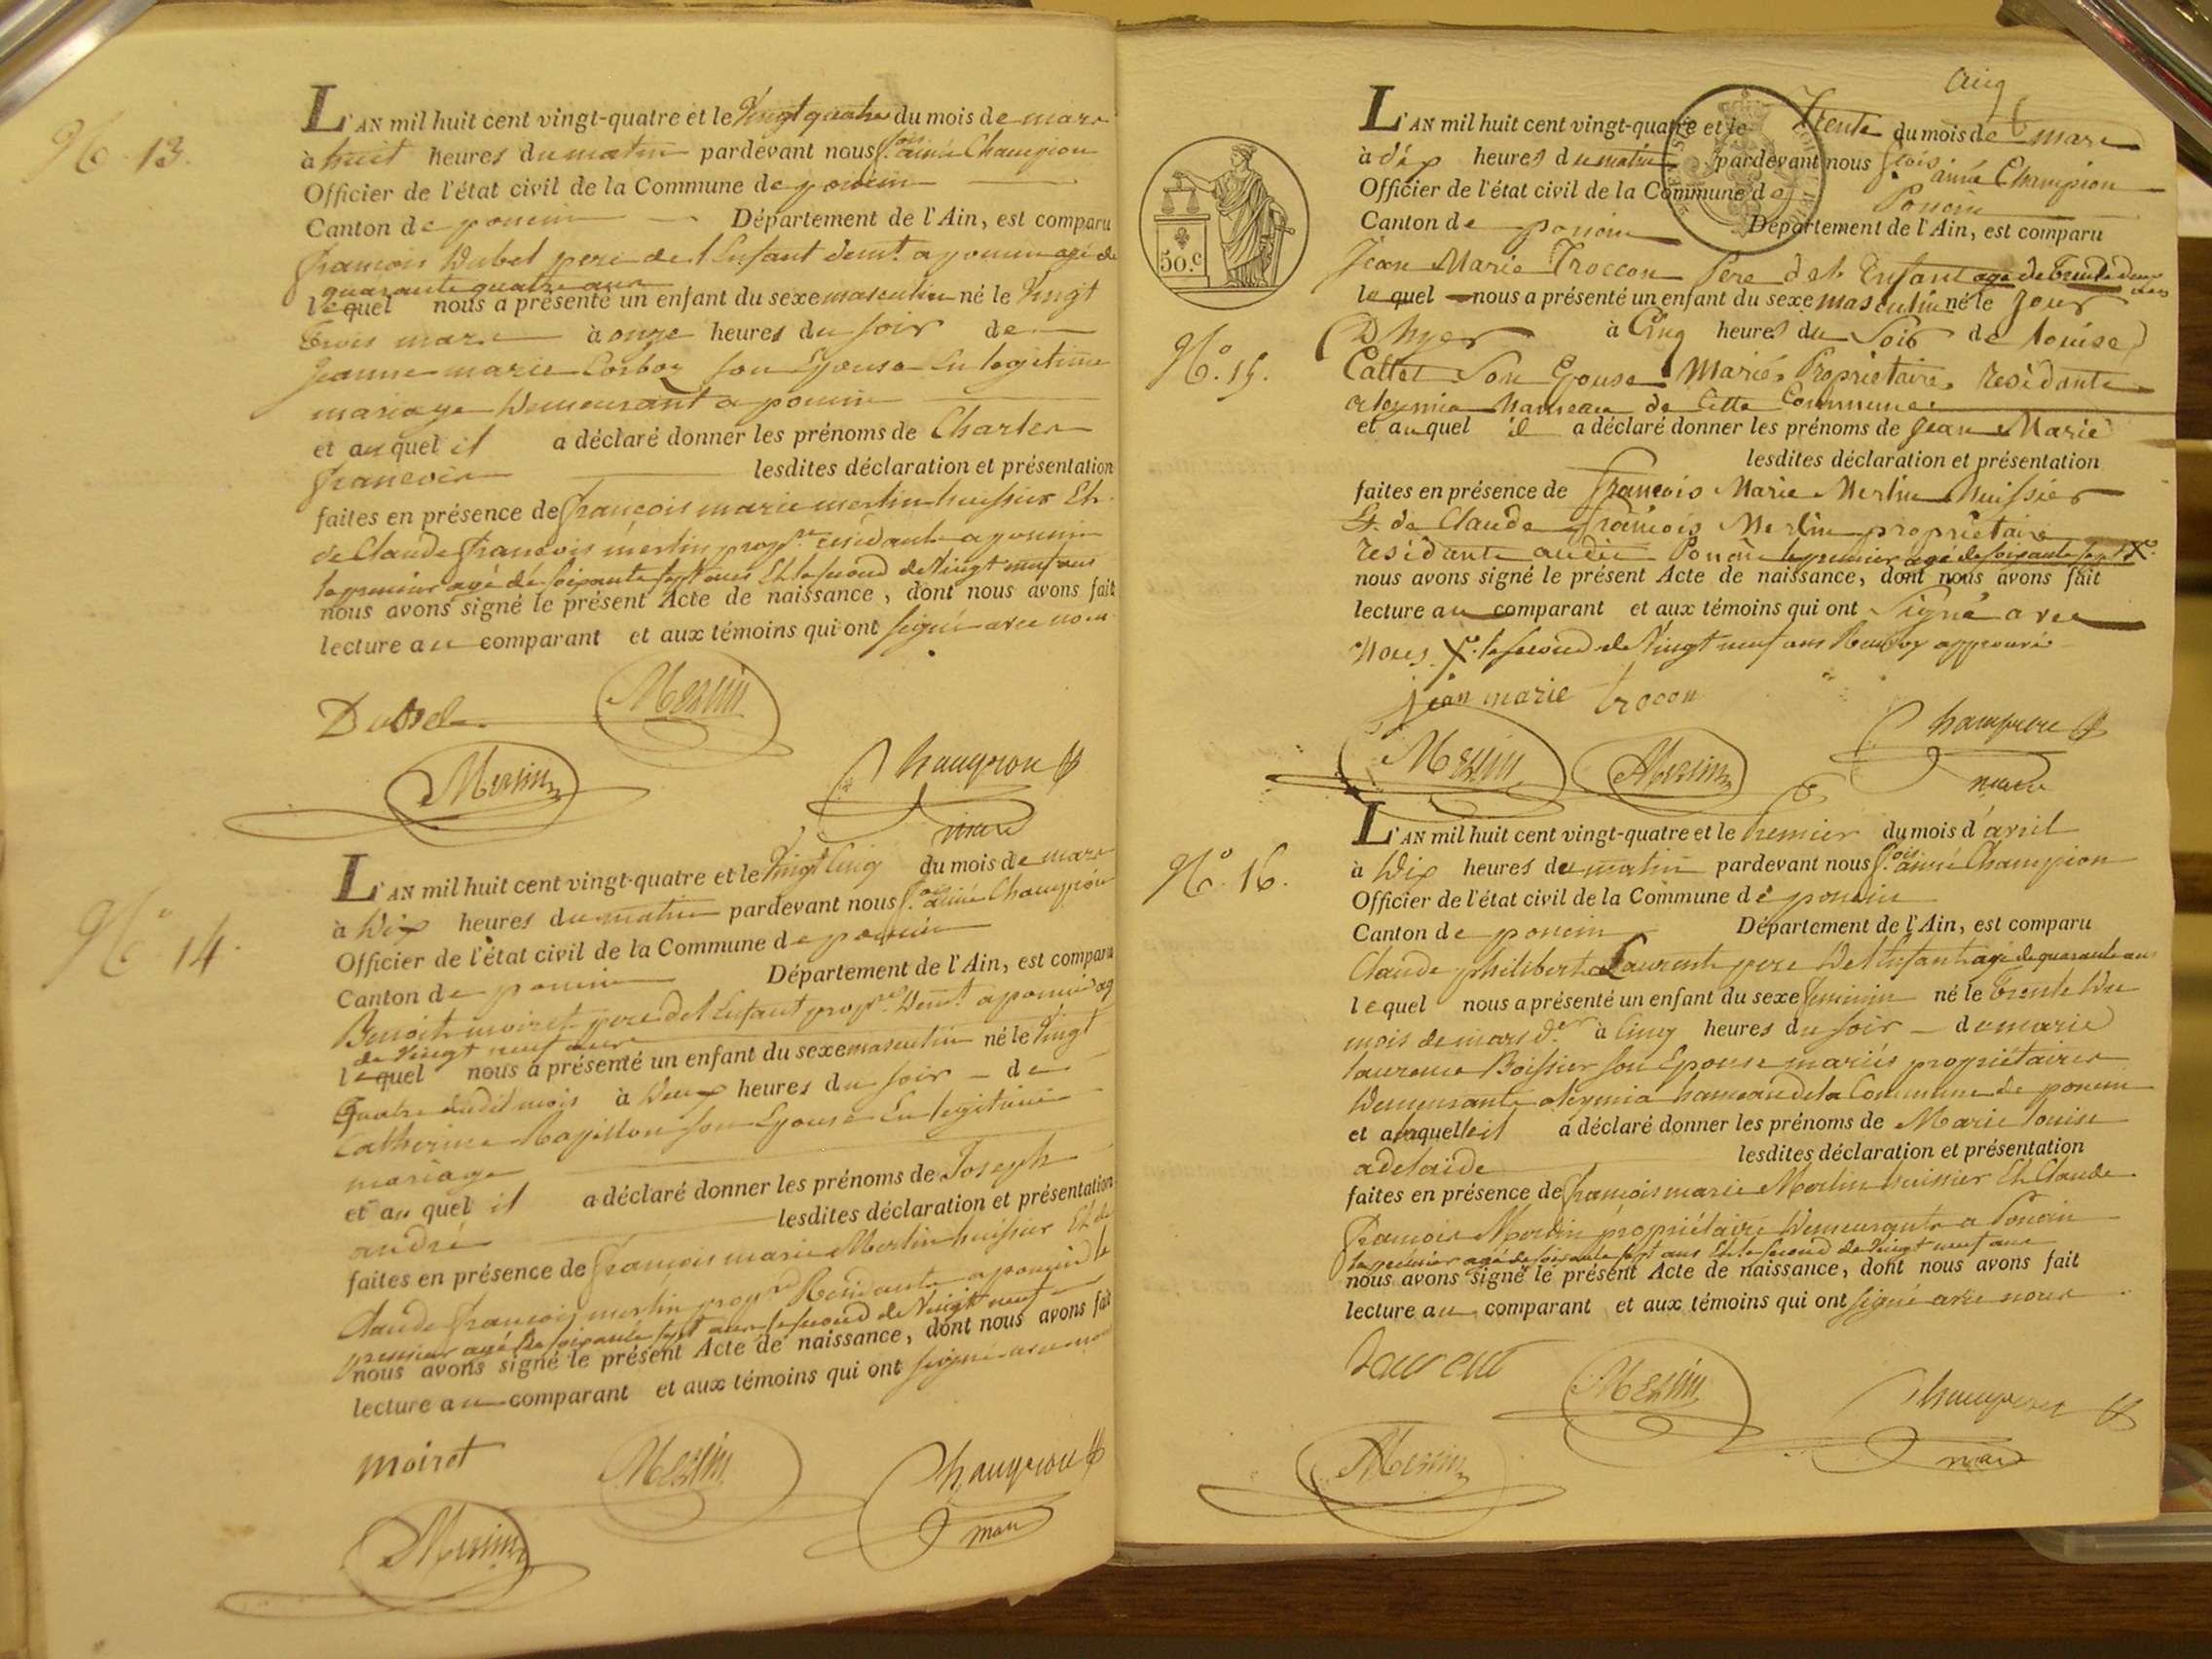 N.º 13.
L'AN mil huit cent vingt-quatre et le Vingt quatre du mois de mars
à huit heures du matin pardevant nous f.ois aimé Champion
Officier de l'état civil de la Commune de poncin
Canton de poncin Département de l'Ain, est comparu
françois Dubel pere de l'Enfant demt. a poncin agé de
quarante quatre ans
lequel nous a présenté un enfant du sexe masculin né le Vingt
trois mars à onze heures du soir de
Jeanne marie son Epouse En legitime
mariage Demeurant a poncin
et auquel il a déclaré donner les prénoms de Charles
francois lesdites déclaration et présentation
faites en présence de françois marie merlin huissier Et
de Claude françois merlin propre. residants a poncin
le premier agé de soixante sept ans Et le second de Vingt neuf ans
nous avons signé le présent Acte de naissance, dont nous avons fait
lecture au comparant et aux témoins qui ont signé avec nous
Dubel Merlin
Merlin Champion
maire
N.º 14.
L'AN mil huit cent vingt-quatre et le Vingt Cinq du mois de mars
à Dix heures du matin pardevant nous f.ois aimé Champion
Officier de l'état civil de la Commune de poncin
Canton de poncin Département de l'Ain, est comparu
Benoit moiret pere de l'Enfant propre. Demt. a poncin ag
de Vingt neuf ans
lequel nous a présenté un enfant du sexe masculin né le Vingt
Quatre dudit mois à Deux heures du soir de
Catherine Rapillon son Epouse En legitime
mariage
et auquel il a déclaré donner les prénoms de Joseph
andré lesdites déclaration et présentation
faites en présence de françois marie Merlin huissier Et de
Claude françois merlin Residants a poncin le
premier agé de soixante sept ans le second de Vingt neuf
nous avons signé le présent Acte de naissance, dont nous avons fait
lecture au comparant et aux témoins qui ont signé avec nous
moiret Merlin Champion
Merlin maire
50.c
N.º 15.
L'AN mil huit cent vingt-quatre et le Trente du mois de mars
à dix heures du matin pardevant nous f.ois aimé Champion
Officier de l'état civil de la Commune de Poncin
Canton de poncin Département de l'Ain, est comparu
Jean Marie Troccon Pere de l'Enfant agé de trente deux ans
lequel nous a présenté un enfant du sexe masculin né le Jour
D'hyer à Cinq heures du Soir de Louise
Cattet Son Epouse Mariés Propriétaires residants
a leymia hameau de Cette Commune
et auquel il a déclaré donner les prénoms de Jean Marie
lesdites déclaration et présentation
faites en présence de François Marie Merlin Huissier
Et de Claude François Merlin propriétaire
residants audit Poncin le premier agé de soixante sept X.
nous avons signé le présent Acte de naissance, dont nous avons fait
lecture au comparant et aux témoins qui ont Signé avec
Nous X. le second de Vingt neuf ans Renvoy approuvé
jean marie trocon
Merlin Merlin Champion
maire
N.º 16.
L'AN mil huit cent vingt-quatre et le Premier du mois d'avril
à Dix heures du matin pardevant nous f.ois aimé Champion
Officier de l'état civil de la Commune de poncin
Canton de poncin Département de l'Ain, est comparu
Claude philibert Laurent pere De l'Enfant agé de quarante ans
lequel nous a présenté un enfant du sexe feminin né le trente Du
mois de mars der. à Cinq heures du soir de marie
laurence Boissier son Epouse mariés propriétaires
Demeurants a leymia hameau de la Commune de poncin
et a laquelle il a déclaré donner les prénoms de Marie Louise
adelaïde lesdites déclaration et présentation
faites en présence de françois marie Merlin huissier Et Claude
François Merlin propriétaire Demeurants a Poncin
le premier agé de soixante sept ans Et le second de Vingt neuf ans
nous avons signé le présent Acte de naissance, dont nous avons fait
lecture au comparant et aux témoins qui ont signé avec nous
Laurent Merlin Champion
Merlin maire